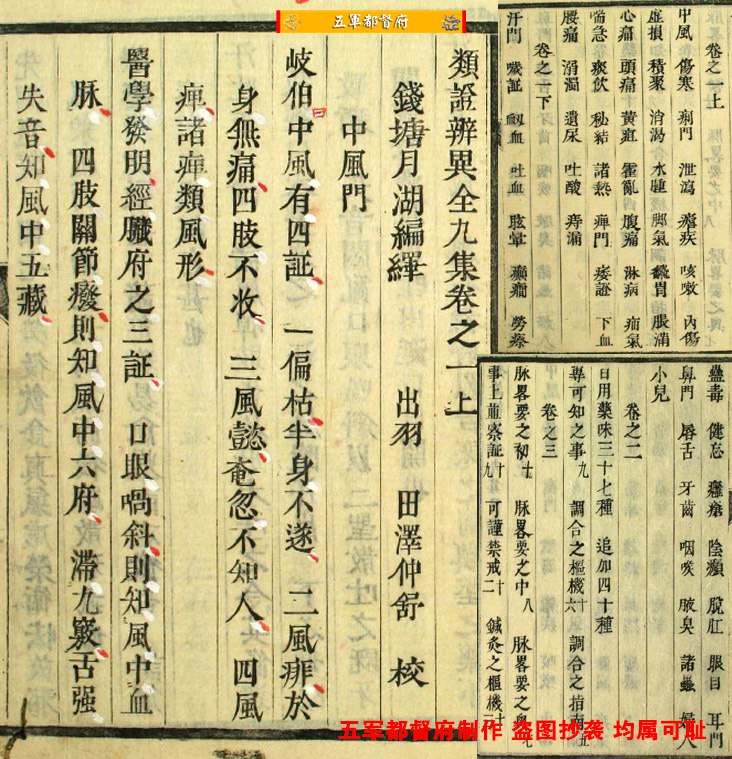 五軍都督府
類證辨異全九集卷之一上
錢塘月湖編繹 出羽 田澤仲舒 校
中風門
岐伯中風有四証 一偏枯半身不遂 二風痱於
身無痛四肢不收 三風懿奄忽不知人 四風
痺諸痺類風形
醫學發明經臟府之三証 口眼喎斜則知風中血
脉 四肢關節癈則知風中六府 滯九竅舌强
失音知風中五藏
卷之一上
中風 傷寒 痢門 泄瀉 瘧疾 咳嗽 内傷
虚損 積聚 消渴 水腫 脚氣 飜胃 脹滿
心痛 頭痛 黄疸 霍亂 腹痛 淋病 疝氣
喘急 痰飲 秘結 諸熱 痺門 痿證 下血
腰痛 溺濁 遺尿 吐酸 痔漏
卷之一下
汗門 嗽証 衂血 吐血 眩暈 癲癇 勞瘵
蠱毒 健忘 癰瘡 陰㿗 脫肛 眼目 耳門
鼻門 唇舌 牙齒 咽喉 腋臭 諸蟲 婦人
小兒
卷之二
日用藥味三十七種 追加四十種
專可知之事九 調合之樞機十六 調合之指南五
卷之三
脉畧要之初十 脉畧要之中八 脉畧要之奥九
事上龍察証十九 可謹禁戒十二 鍼灸之樞機十
五军都督府制作 盗图抄袭 均属可耻